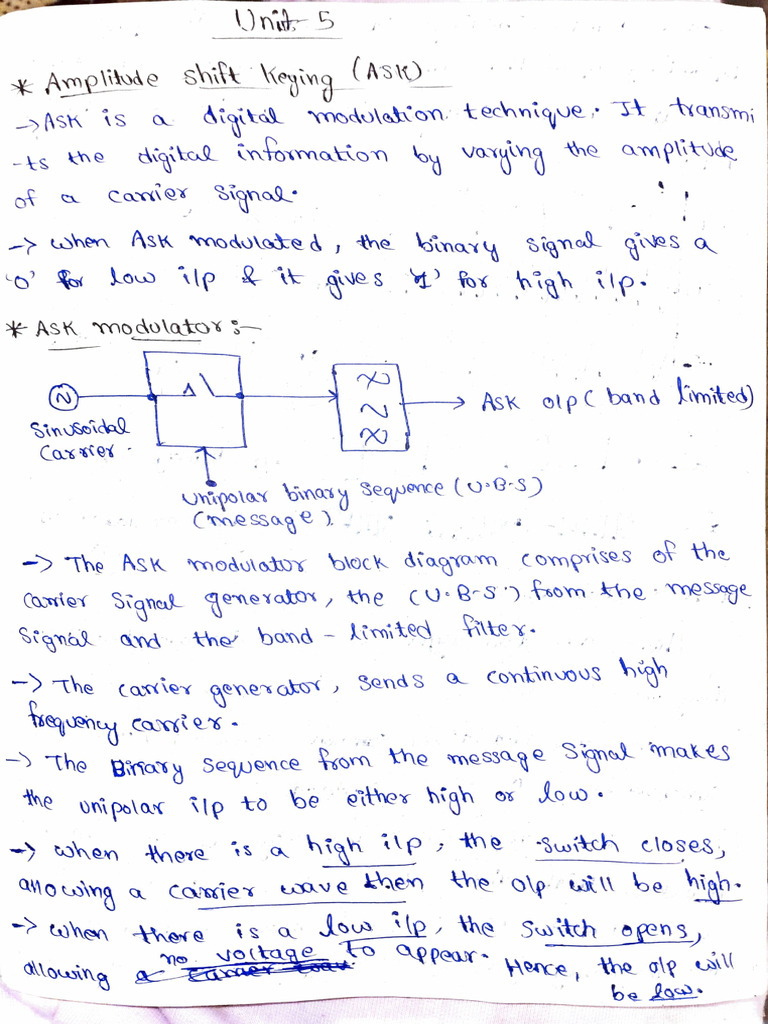 Unit-5
* Amplitude shift keying (ASK)
-> ASK is a digital modulation technique. It transmi
-ts the digital information by varying the amplitude
of a carrier signal.
-> when ASK modulated, the binary signal gives a
'0' for low i/p & it gives '1' for high i/p.
* ASK modulator:-
ASK o/p (band limited)
Sinusoidal
Carrier.
Unipolar binary sequence (U.B.S)
(message).
-> The ASK modulator block diagram comprises of the
carrier signal generator, the (U.B.S) from the message
signal and the band-limited filter.
-> The carrier generator, sends a continuous high
frequency carrier.
-> The Binary sequence from the message signal makes
the unipolar i/p to be either high or low.
-> when there is a high i/p, the switch closes,
allowing a carrier wave then the o/p will be high.
-> when there is a low i/p, the switch opens,
allowing no voltage to appear. Hence, the o/p will
be low.